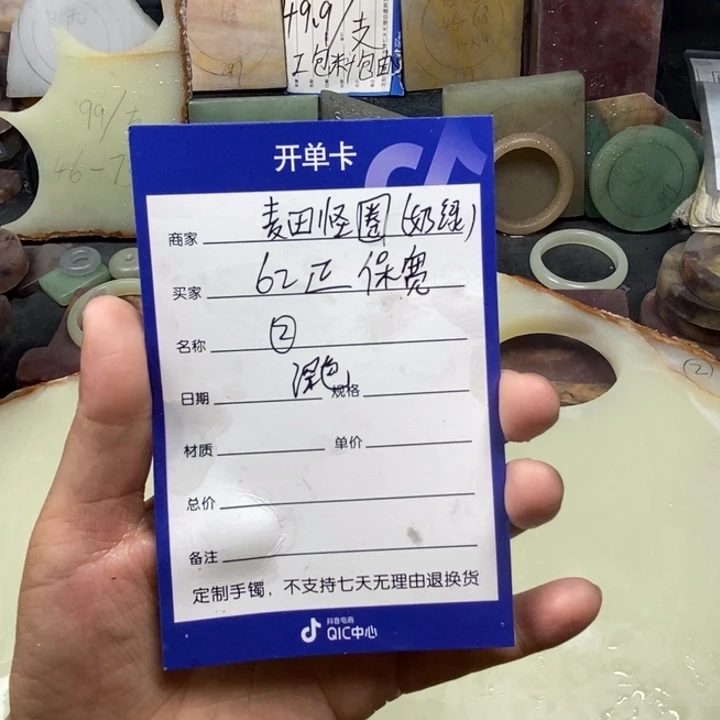 49.9/支
工包料包邮
99/支
46-7
46-68
开单卡
商家 麦田怪圈(奶绿)
买家 62正 保宽
名称 ②
日期 深色 规格
材质 单价
总价
备注
定制手镯,不支持七天无理由退换货
抖音电商
QIC中心
②